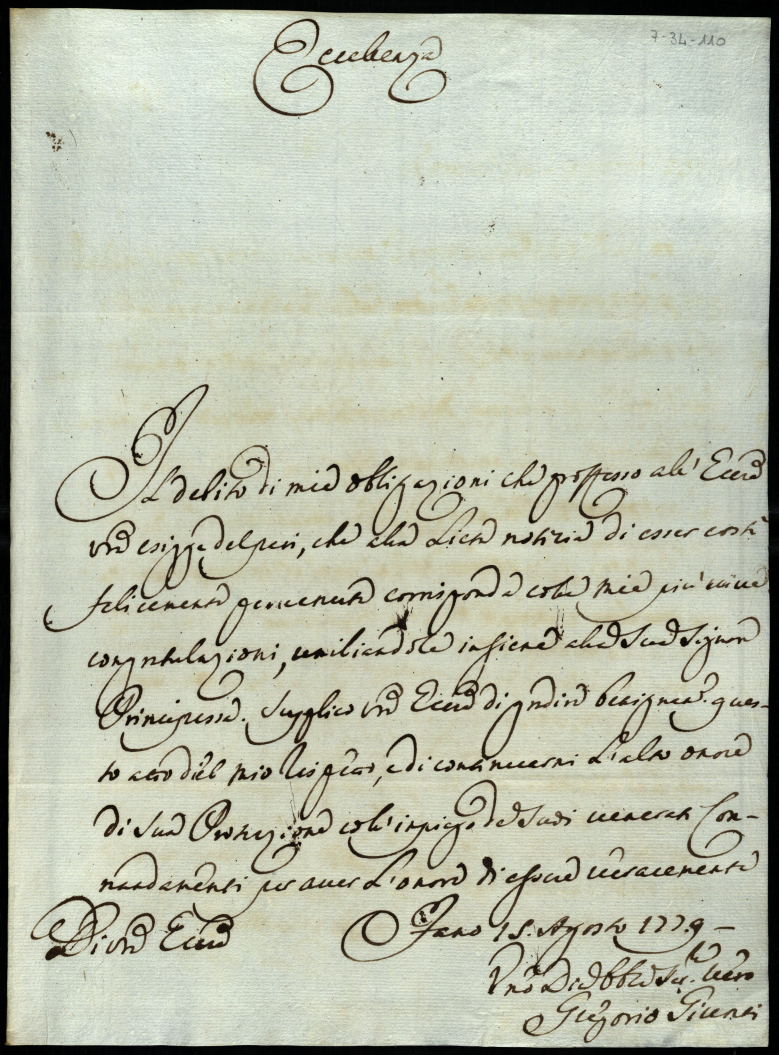 7-34-110
Eccellenza
Il debito di mie obbligazioni che professo all' Eccza
vra esigge del pari, che alla lieta notizia di esser costì
felicemente pervenuta corrisponda colle mie più vive
congratulazioni, umiliandole insieme alla Sua Signora
Principessa. Supplico vra Eccza di gradire benignamte. ques-
to atto del mio rispetto, e di continuarmi l'alto onore
di sua Protezione coll' impiego de suoi venerati Com-
mandamenti per aver l'onore di essere veracemente
Di vra Eccza Fano 15. Agosto 1779 -
Umo Dmo Obblmo Serre vero
Gregorio